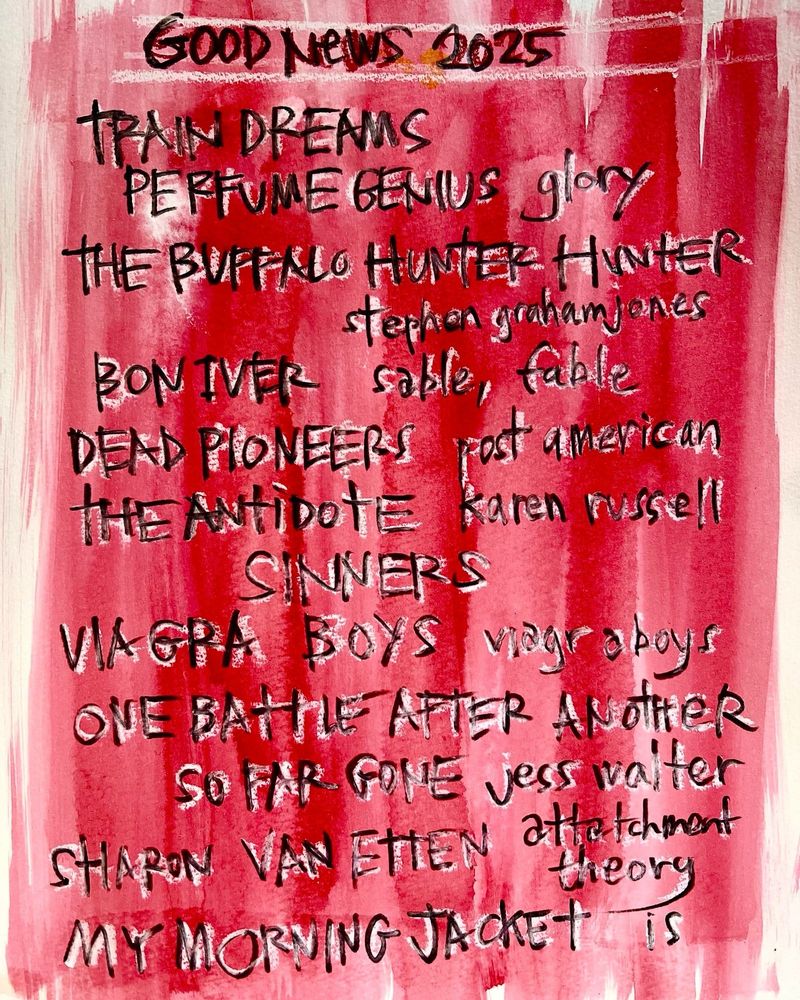 GOOD NeWS 2025
TRAIN DREAMS
PERFUME GENIUS glory
THE BUFFALO HUNTER HUNTER
stephen graham jones
BON IVER sable, fable
DEAD PIONEERS post american
THE ANTiDOTE karen russell
SINNERS
VIAGRA BOYS viagr aboys
ONE BATTLE AFTER ANOTHER
SO FAR GONE jess walter
SHARON VAN ETTEN attatchment
theory
MY MORNING JACKET is